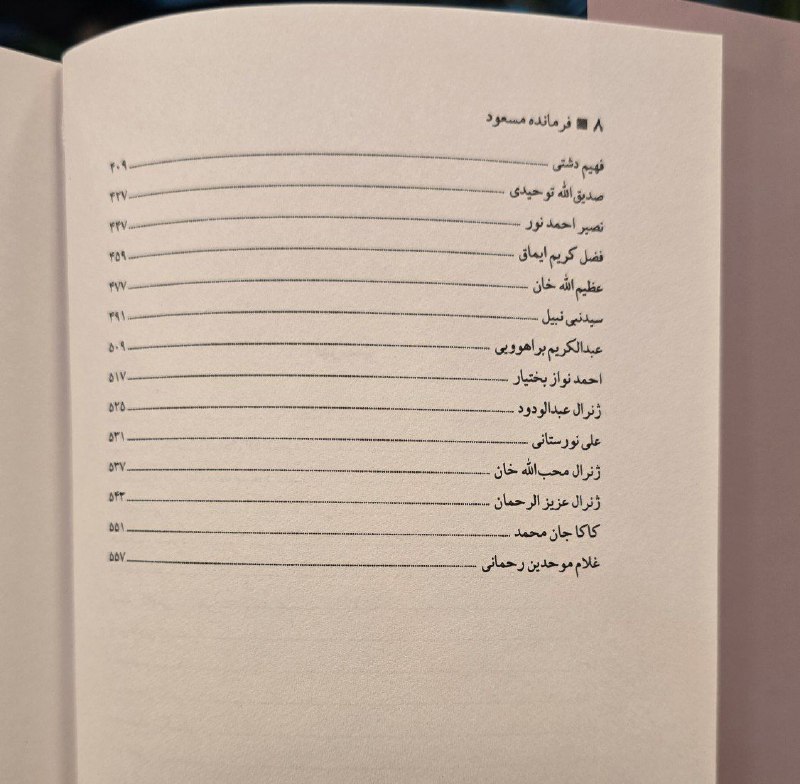 ۸ ■ فرمانده مسعود
فهیم دشتی ۴۰۹
صدیق‌الله توحیدی ۴۲۷
نصیر احمد نور ۴۴۷
فضل کریم ایماق ۴۵۹
عظیم‌الله خان ۴۷۷
سیدنبی نبیل ۴۹۱
عبدالکریم براهوویی ۵۰۹
احمد نواز بختیار ۵۱۷
ژنرال عبدالودود ۵۲۵
علی نورستانی ۵۳۱
ژنرال محب‌الله خان ۵۳۷
ژنرال عزیز الرحمان ۵۴۳
کاکا جان محمد ۵۵۱
غلام موحدین رحمانی ۵۵۷